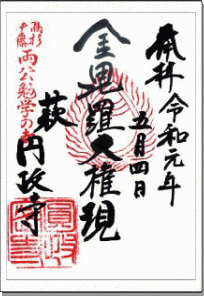 奉拝 令和元年
五月四日
金毘羅大権現
萩 円政寺
両公勉学の
圓政